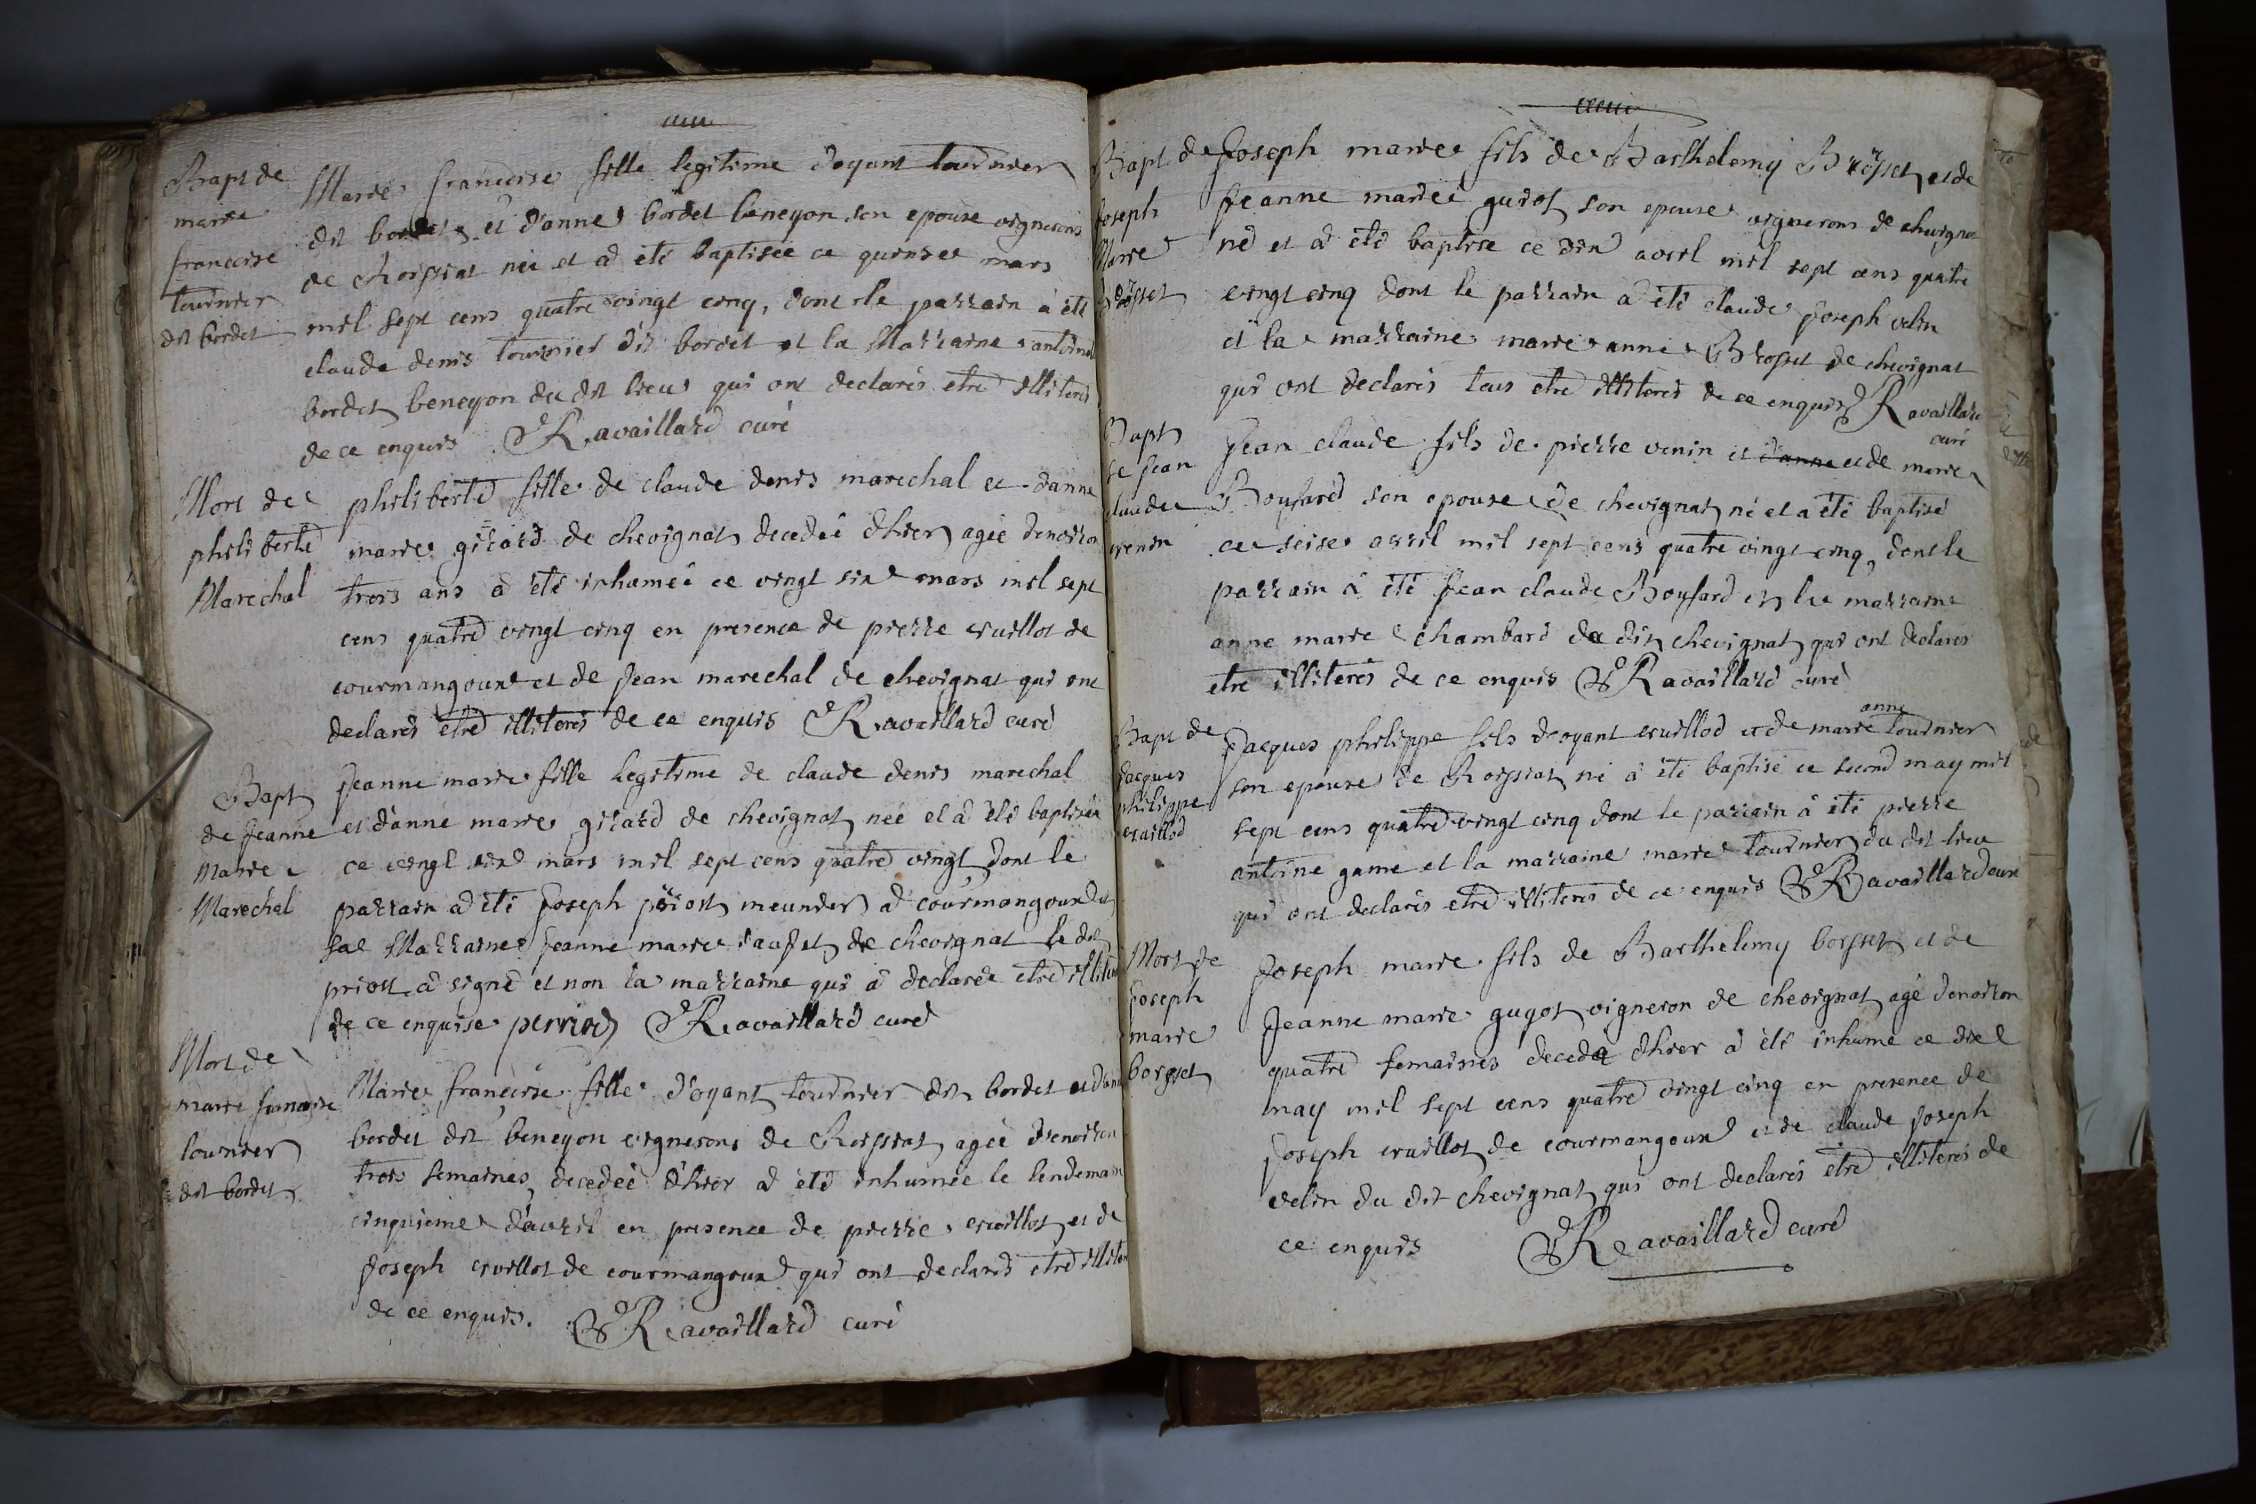 Bapt de
marie
francoise
tournier
dit bordet
Marie francoise fille legitime doyant tournier
dit bordet et d'anne bordet beneyon son epouse vignerons
de Roissiat née et a été baptisée ce quinse mars
mil sept cens quatre vingt cinq, dont le parrain à été
claude denis tournier dit bordet et la Marraine antoine
bordet beneyon du dit lieu qui ont declarés etre illiterés
de ce enquis Ravaillard curé
Mort de
philiberte
Marechal
philiberte fille de claude denis marechal et danne
marie girard de chevignat decedée d'hier agée denviron
trois ans a été inhamée ce vingt six mars mil sept
cens quatre vingt cinq en presence de pierre vuillot de
courmangoux et de jean marechal de chevignat qui ont
declarés etre illiterés de ce enquis Ravaillard curé
Bapt
de jeanne
marie
Marechal
jeanne marie fille legitime de claude denis marechal
et d'anne marie girard de chevignat née et a été baptisée
ce vingt six mars mil sept cens quatre vingt dont le
parrain a été joseph priost meunier a courmangoux et
la Marraine jeanne marie de chevignat le dit
priost a signé et non la marraine qui a declarée etre
de ce enquise perriod Ravaillard curé
Mort de
marie francoise
tournier
dit bordet
Marie francoise fille d'oyant tournier dit bordet et
bordet dit beneyon vignerons de Roissiat agée denviron
trois semaines decedée d'hier a été inhumée le lendemain
cinquieme d'avril en presence de pierre vuillot et de
joseph vuillot de courmangoux qui ont declarés etre
de ce enquis. Ravaillard curé
Bapt de
joseph
Marie
Joseph marie fils de Barthelemy et de
jeanne marie guiot son epouse vignerons de chevignat
né et a été baptise ce six avril mil sept cens quatre
vingt cinq dont le parrain a été claude joseph velin
et la marraine marie anne Brosset de chevignat
qui ont declarés tous etre illiterés de ce enquis Ravaillard
curé
Bapt
de jean
claude
venin
jean claude fils de pierre venin et d'anne et de marie
Boufard son epouse de chevignat né et a été baptisé
ce seise avril mil sept cens quatre vingt cinq, dont le
parrain à été jean claude Boufard et la marraine
anne marie chambard du dit chevignat qui ont declarés
etre illiterés de ce enquis Ravaillard curé
Bapt de
jacques
philippe
vuillod
anne
jacques philippe fils d'oyant vuillod et de marie tournier
son epouse de Roissiat né a été baptisé ce second may mil
sept cens quatre vingt cinq dont le parrain à été pierre
antoine game et la marraine marie tournier du dit lieu
qui ont declarés etre illiterés de ce enquis Ravaillard curé
Mort de
joseph
marie
borsset
Joseph marie fils de Barthelemy borsset et de
jeanne marie guyot vigneron de chevignat agé denviron
quatre semaines decedé d'hier a été inhumé ce dix
may mil sept cens quatre vingt cinq en presence de
joseph vuillot de courmangoux et de claude joseph
velin du dit chevignat qui ont declarés etre illiterés de
ce enquis Ravaillard curé